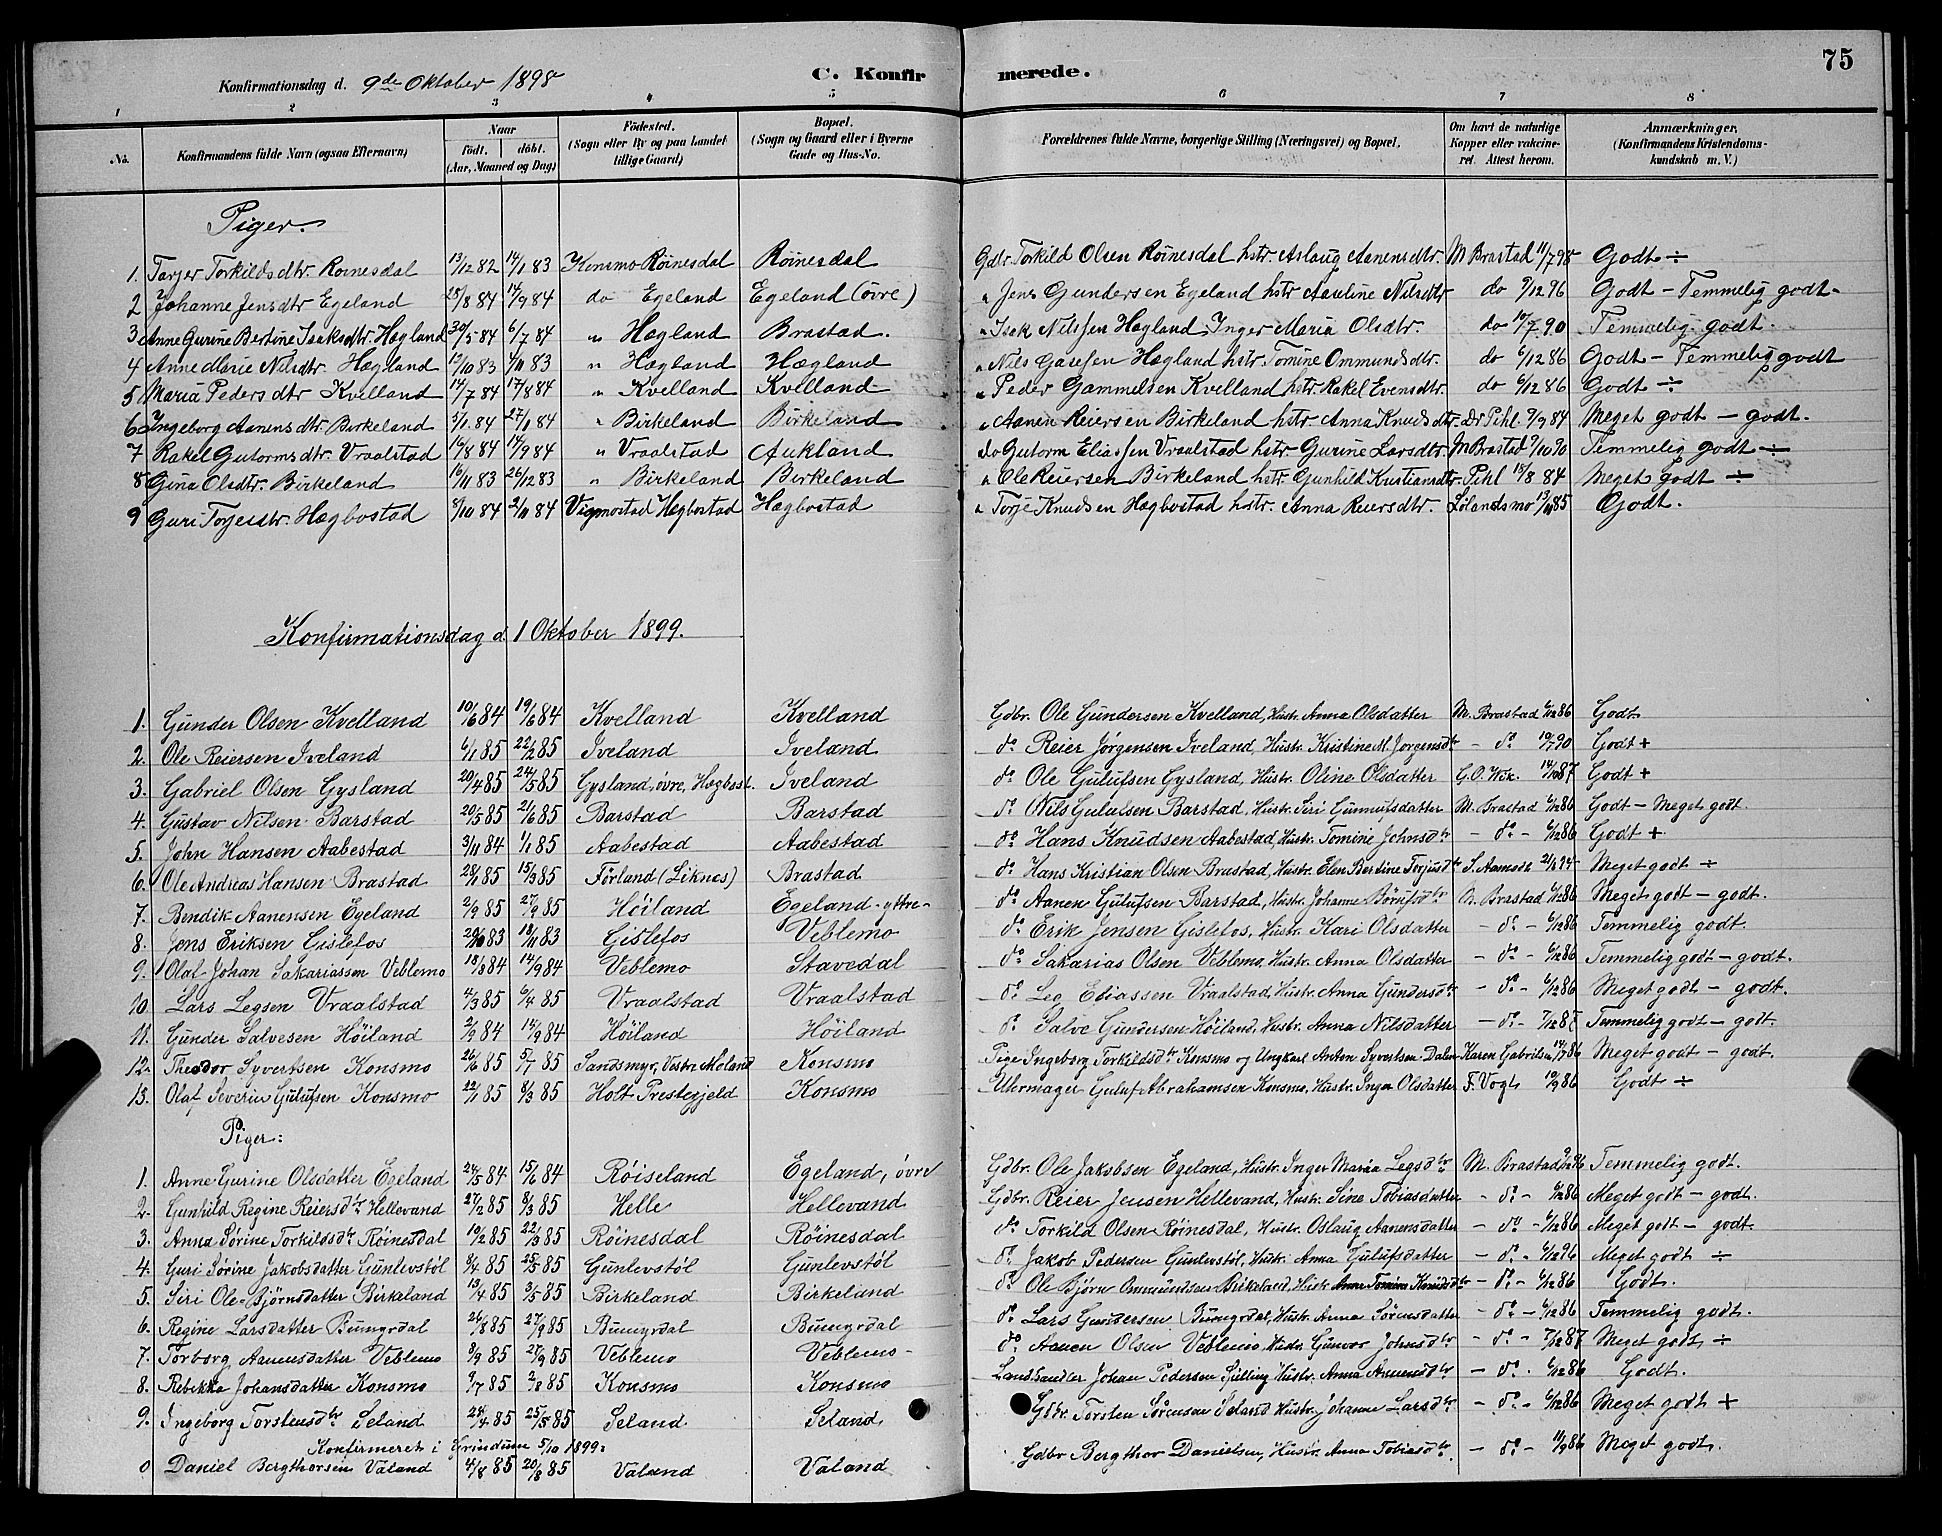 75
Konfirmationsdag d. 9de Oktober 1898
C. Konfirmerede.
1 2 3 4 5 6 7 8
No. Konfirmandens fulde Navn (ogsaa Efternavn) Naar födt. döbt. (Aar, Maaned og Dag) Födested. (Sogn eller By og paa Landet tillige Gaard) Bopæl. (Sogn og Gaard eller i Byerne Gade og Hus-No. Forældrenes fulde Navne, borgerlige Stilling (Næringsvei) og Bopæl. Om havt de naturlige Kopper eller vakcineret. Attest herom. Anmærkninger. (Konfirmandens Kristendomskundskab m. V.)
Piger.
1. Tarjer Torkildsdtr. Roinesdal 13/12 82 14/1 83 Konsmo Röinesdal Röinesdal Gdbr. Torkild Olsen Röinesdal hstr. Aslaug Aanensdtr. M Brastad 11/7 98 Godt ÷
2 Johanne Jensdtr Egeland 25/8 84 14/9 84 do Egeland Egeland (övre) " Jens Gundersen Egeland hstr Aaseline Nilsdtr do 9/12 96 Godt - Temmelig godt -
3 Anne Gurine Bertine Isaksdtr. Hægland 30/5 84 6/7 84 " Hægland Brastad. " Isak Nilssen Hægland Inger Maria Olsdtr. do 10/7 90 Temmelig godt.
4 Anne Marie Nilsdtr. Hægland 12/10 83 4/11 83 " Hægland Hægland " Nils Gasessen Hægland hstr. Tomine Ommundsdtr. do 6/12 86 Godt - Temmelig godt
5 Maria Pedersdtr Kvelland 14/7 84 17/8 84 " Kvelland Kvelland " Peder Gammelsen Kvelland hstr. Rakel Evensdtr. do 6/12 86 Godt ÷
6 Ingeborg Aanensdtr. Birkeland 5/1 84 27/1 84 " Birkeland Birkeland " Aanen Reiersen Birkeland hstr Anna Knudsdtr. Dr Pihl 9/9 84 Meget godt - godt.
7 Rakel Gutormsdtr. Vraalstad 16/8 84 14/9 84 " Vraalstad Aukland do Gutorm Eliassen Vraalstad hstr. Gurine Larsdtr. M Brastad 9/10 90 Temmelig godt ÷
8 Gina Olsdtr. Birkeland 16/11 83 26/12 83 " Birkeland Birkeland " Ole Reiersen Birkeland hstr. Gunhild Kristiansdtr. Pihl 18/8 84 Meget godt ÷
9 Guri Torjesdtr. Hægbostad 8/10 84 2/11 84 Vigmostad Hægbostad Hægbostad " Torje Knudsen Hægbostad hstr. Anna Reiersdtr. Lölandsmo 13/10 85 Godt.
Konfirmationsdag d. 1 Oktober 1899.
1. Gunder Olsen Kvelland 10/6 84 19/6 84 Kvelland Kvelland Gdbr. Ole Gundersen Kvelland, Hustr. Anna Olsdatter M. Brastad 6/12 86 Godt
2. Ole Reiersen Iveland 6/1 85 22/2 85 Iveland Iveland do Reier Jörgensen Iveland, Hustr. Kristine M. Jörgensdtr - do 10/7 90 Godt +
3. Gabriel Olsen Gysland 20/4 85 24/5 85 Gysland, övre, Hægbost. Iveland do Ole Gulufsen Gysland, Hustr. Oline Olsdatter G.O. Wik. 14/10 87 Godt +
4. Gustav Nilsen Barstad 20/5 85 21/6 85 Barstad Barstad do Nils Gulufsen Barstad, Hustr. Siri Gunnufsdatter M. Brastad 6/12 86 Godt - Meget godt.
5. John Hansen Aabestad 3/11 84 1/1 85 Aabestad Aabestad do Hans Knudsen Aabestad, Hustr. Tomine Johnsdtr - do - 6/12 86 Godt +
6. Ole Andreas Hansen Brastad 28/1 85 15/3 85 Förland (Liknes) Brastad do Hans Kristian Olsen Brastad, Hustr. Elen Bertine Torjusdtr S. Aamodt Meget godt ÷
7. Bendik Aanensen Egeland 2/9 85 27/9 85 Höiland Egeland - yttre - do Aanen Gulufsen Barstad, Hustr. Johanne Börufsdtr M. Brastad 6/12 86 Meget godt - godt.
8. Jens Eriksen Gislefos 29/10 83 18/11 83 Gislefos Veblemo do Erik Jensen Gislefos, Hustr. Kari Olsdatter - do - 6/12 86 Temmelig godt.
9. Olaf Johan Sakariassen Veblemo 18/8 84 14/9 84 Veblemo Stavedal do Sakarias Olsen Veblemo, Hustr. Anna Olsdatter - do - 6/12 86 Temmelig godt - godt.
10. Lars Legsen Vraalstad 4/3 85 6/4 85 Vraalstad Vraalstad do Leg Eliassen Vraalstad, Hustr. Anna Gundersdtr - do - 6/12 86 Meget godt - godt.
11. Gunder Salvesen Höiland 2/9 84 14/9 84 Höiland Höiland do Salve Gundersen Höiland, Hustr. Anna Nilsdatter - do - 7/12 87 Temmelig godt - godt.
12. Theodor Syvertsen Konsmo 26/6 85 5/7 85 Sandsmyr, Vestre Moland Konsmo Pige Ingeborg Torkildsdtr Konsmo og Ungkarl Anton Syvertsen Dalen Karen Gabrielsen 14/7 86 Meget godt - godt.
13. Olaf Severin Gulufsen Konsmo 22/1 85 8/3 85 Holt Prestegjeld Konsmo Uhrmager Guluf Abrahamsen Konsmo, Hustr. Inger Olsdatter F. Vogt 10/9 86 Godt ÷
Piger:
1. Anne Gurine Olsdatter Egeland 24/5 84 15/6 84 Röiseland Egeland, övre Gdbr. Ole Jakobsen Egeland, Hustr. Inger Maria Legsdtr M. Brastad 9/12 96 Temmelig godt.
2. Gunhild Regine Reiersdtr Hellevand 27/2 85 8/3 85 Helle Hellevand Gdbr. Reier Jensen Hellevand, Hustr. Sine Tobiasdatter - do - 6/12 86 Meget godt - godt.
3. Anna Sörine Torkildsdtr Röinesdal 10/2 85 22/3 85 Röinesdal Röinesdal do Torkild Olsen Röinesdal, Hustr. Oslaug Aanensdatter - do - 6/12 86 Meget godt - godt.
4. Guri Sörine Jakobsdatter Gunlevstöl 8/4 85 25/5 85 Gunlevstöl Gunlevstöl do Jakob Pedersen Gunlevstöl, Hustr. Anna Gulufsdatter - do - 6/12 96 Meget godt ÷
5. Siri Ole-Björnsdatter Birkeland 13/4 85 3/5 85 Birkeland Birkeland do Ole Björn Ommundsen Birkeland, Hustr. Anne Tomine Knudsdtr - do - 6/12 86 Godt.
6. Regine Larsdatter Bungrdal 26/8 85 27/9 85 Bungrdal Bungrdal do Lars Gundersen Bungrdal, Hustr. Anna Sörensdatter - do - 6/12 86 Temmelig godt.
7. Torborg Aanensdatter Veblemo 8/9 85 27/9 85 Veblemo Veblemo - do Aanen Olsen Veblemo, Hustr. Gunvor Johnsdtr - do - 7/12 87 Meget godt ÷
8. Rebekka Johansdatter Konsmo 9/7 85 2/8 85 Konsmo Konsmo Landhandler Johan Pedersen Spilling Hustr. Anna Aanensdtr - do - 6/12 86 Godt.
9. Ingeborg Torstensdtr Seland 28/4 85 25/5 85 Seland. Seland, Gdbr. Torsten Sörensen Seland Hustr. Johanne Larsdtr - do - 6/12 86 Meget godt +
Konfirmeret i Grindum 5/10 1899:
0 Daniel Bergthorsen Valand 4/8 85 20/8 85 Valand Valand Gdbr Bergthor Danielsen, Hustr. Anna Tobiasdtr. - do - 11/9 86 Meget godt.